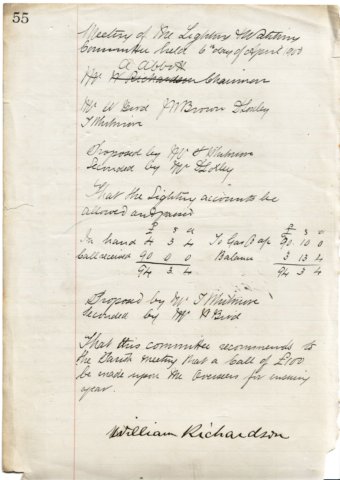 55
Meeting of the Lighting & Watching
Committee held 6th day of April 1903
A Abbott
Mr W Richardson Chairman
Mr W Bird J W Brown D Lodley
T Whitmore
Proposed by Mr T Whitmore
Seconded by Mr D Lodley
That the Lighting accounts be
allowed and passed
£ s d £ s d
In hand 4 3 4 To Gas B a/c 90 10 0
Call received 90 0 0 Balance 3 13 4
94 3 4 94 3 4
Proposed by Mr T Whitmore
Seconded by Mr Bird
That this committee recommends to
the Parish Meeting that a Call of £100
be made upon the Overseers for ensuing
year.
William Richardson